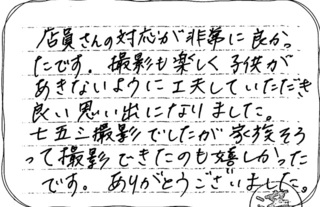 店員さんの対応が非常に良かっ
たです。撮影も楽しく子供が
あきないように工夫していただき
良い思い出になりました。
七五三撮影でしたが家族そろ
って撮影できたのも嬉しかった
です。ありがとうございました。